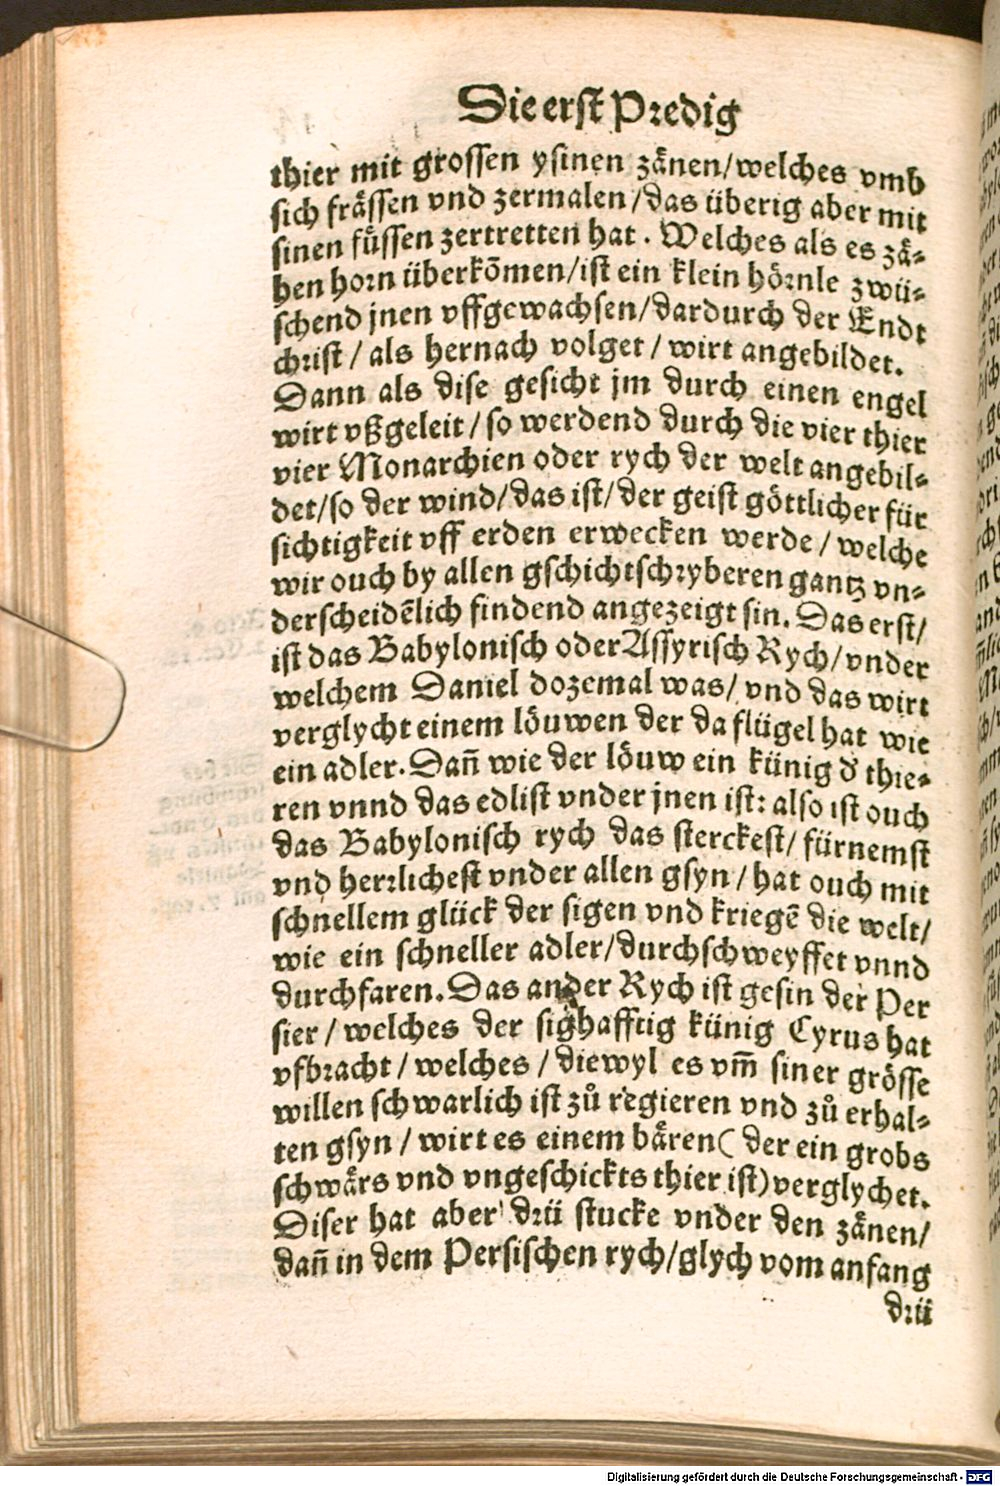 Die erst Predig
thier mit grossen ysinen zånen/welches vmb
sich fråssen vnd zermalen/das überig aber mit
sinen füssen zertretten hat. Welches als es zå-
hen horn überkōmen/ist ein klein hörnle zwü-
schend jnen vffgewachsen/dardurch der Endt
christ/ als hernach volget/ wirt angebildet.
Dann als dise gesicht jm durch einen engel
wirt vßgeleit/ so werdend durch die vier thier
vier Monarchien oder rych der welt angebil-
det/so der wind/das ist/der geist göttlicher für
sichtigkeit vff erden erwecken werde/ welche
wir ouch by allen gschichtschryberen gantz vn-
derscheidēlich findend angezeigt sin. Das erst/
ist das Babylonisch oder Assyrisch Rych/vnder
welchem Daniel dozemal was/ vnd das wirt
verglycht einem löuwen der da flügel hat wie
ein adler. Dañ wie der löuw ein künig d' thie-
ren vnnd das edlist vnder jnen ist: also ist ouch
das Babylonisch rych das sterckest/ fürnemst
vnd herrlichest vnder allen gsyn/ hat ouch mit
schnellem glück der sigen vnd kriegē die welt/
wie ein schneller adler/durchschweyffet vnnd
durchfaren. Das ander Rych ist gesin der Per
sier/ welches der sighafftig künig Cyrus hat
vfbracht/ welches/ diewyl es vm̄ siner grösse
willen schwarlich ist zů regieren vnd zů erhal-
ten gsyn/ wirt es einem båren( der ein grobs
schwårs vnd vngeschickts thier ist) verglychet.
Diser hat aber drü stucke vnder den zånen/
dañ in dem Persischen rych/glych vom anfang
drü
Digitalisierung gefördert durch die Deutsche Forschungsgemeinschaft - DFG